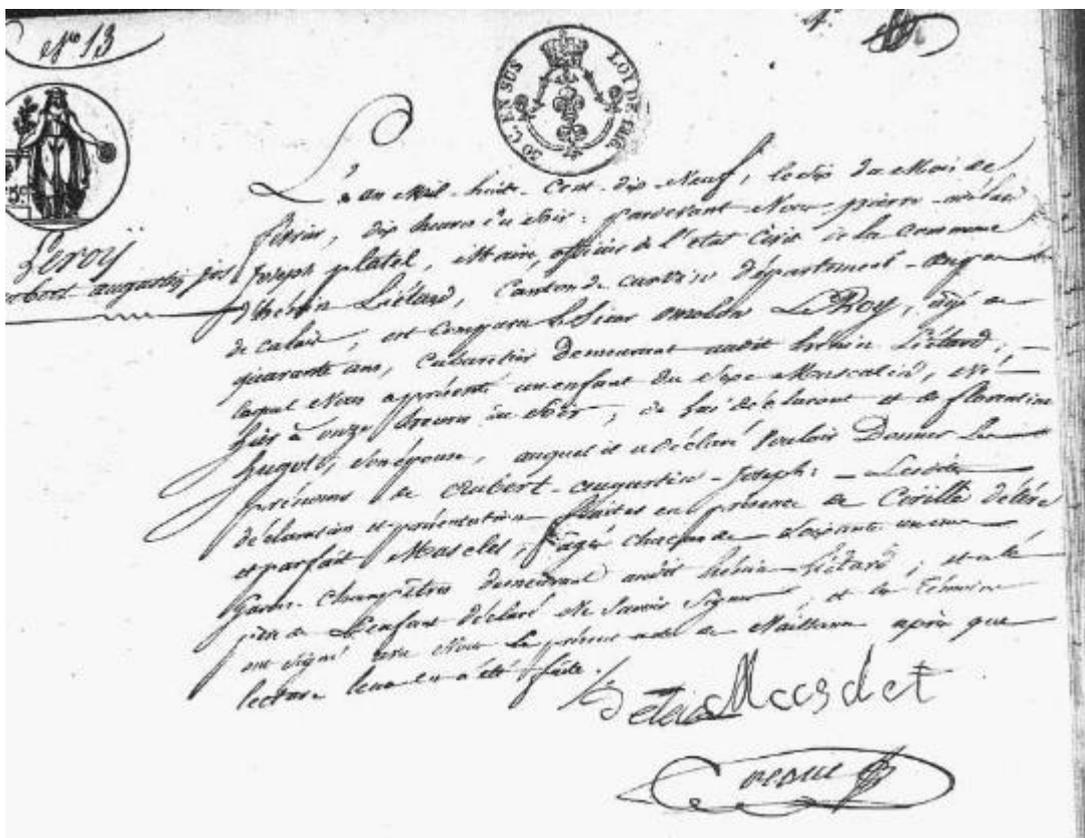 N° 13
30 C. EN SUS LOI DE 1816
Leroÿ
aubert augustin jos
L'an Mil-huit-Cent-dix-Neuf, le six du Mois de
fevrier, dix heures du soir: pardevant Nous pierre
joseph platel, Maire, officier de l'etat Civil de la Commune
d'henin Liétard, Canton de carvin département
de calais, est Comparu le sieur Le Roy, agé de
quarante ans, Cabaretier demeurant audit henin Liétard, —
lequel Nous a présenté un enfant du sexe Masculin, Né —
hier à onze heures du soir, de lui déclarant et de florentine
hugot, son épouse, auquel il a déclaré Vouloir Donner Les
prénoms de Aubert-augustin-Joseph: — Lesdites
déclaration et présentation faites en présence de
et parfait Masclet, agés chacun de soixante un ans
Gardes-champêtres demeurant audit henin-Liétard; et a le
père de L'enfant déclaré Ne Savoir Signer, et les Témoins
ont signé avec Nous le présent acte de Naissance après que
lecture leur en a été faite.
Masclet